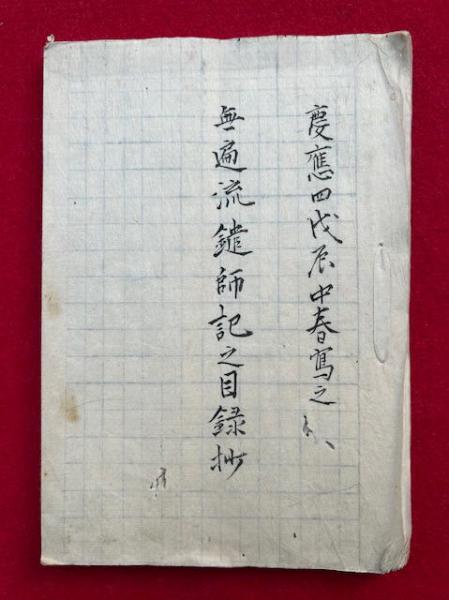 慶應四戊辰中春寫之
無遍流鑓師記之目録抄